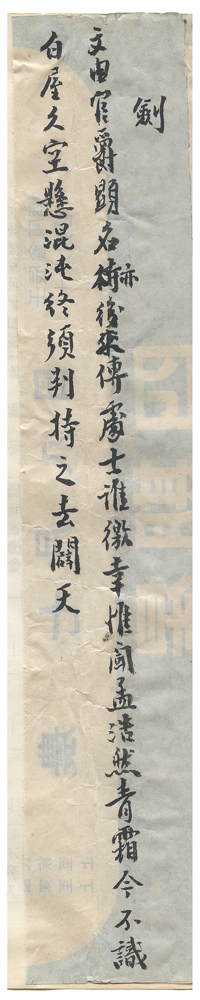 劍
文由官爵顯名亦後來傳處士誰徼幸惟聞孟浩然青霜今不識
白屋久空懸混沌終須判持之去闢天